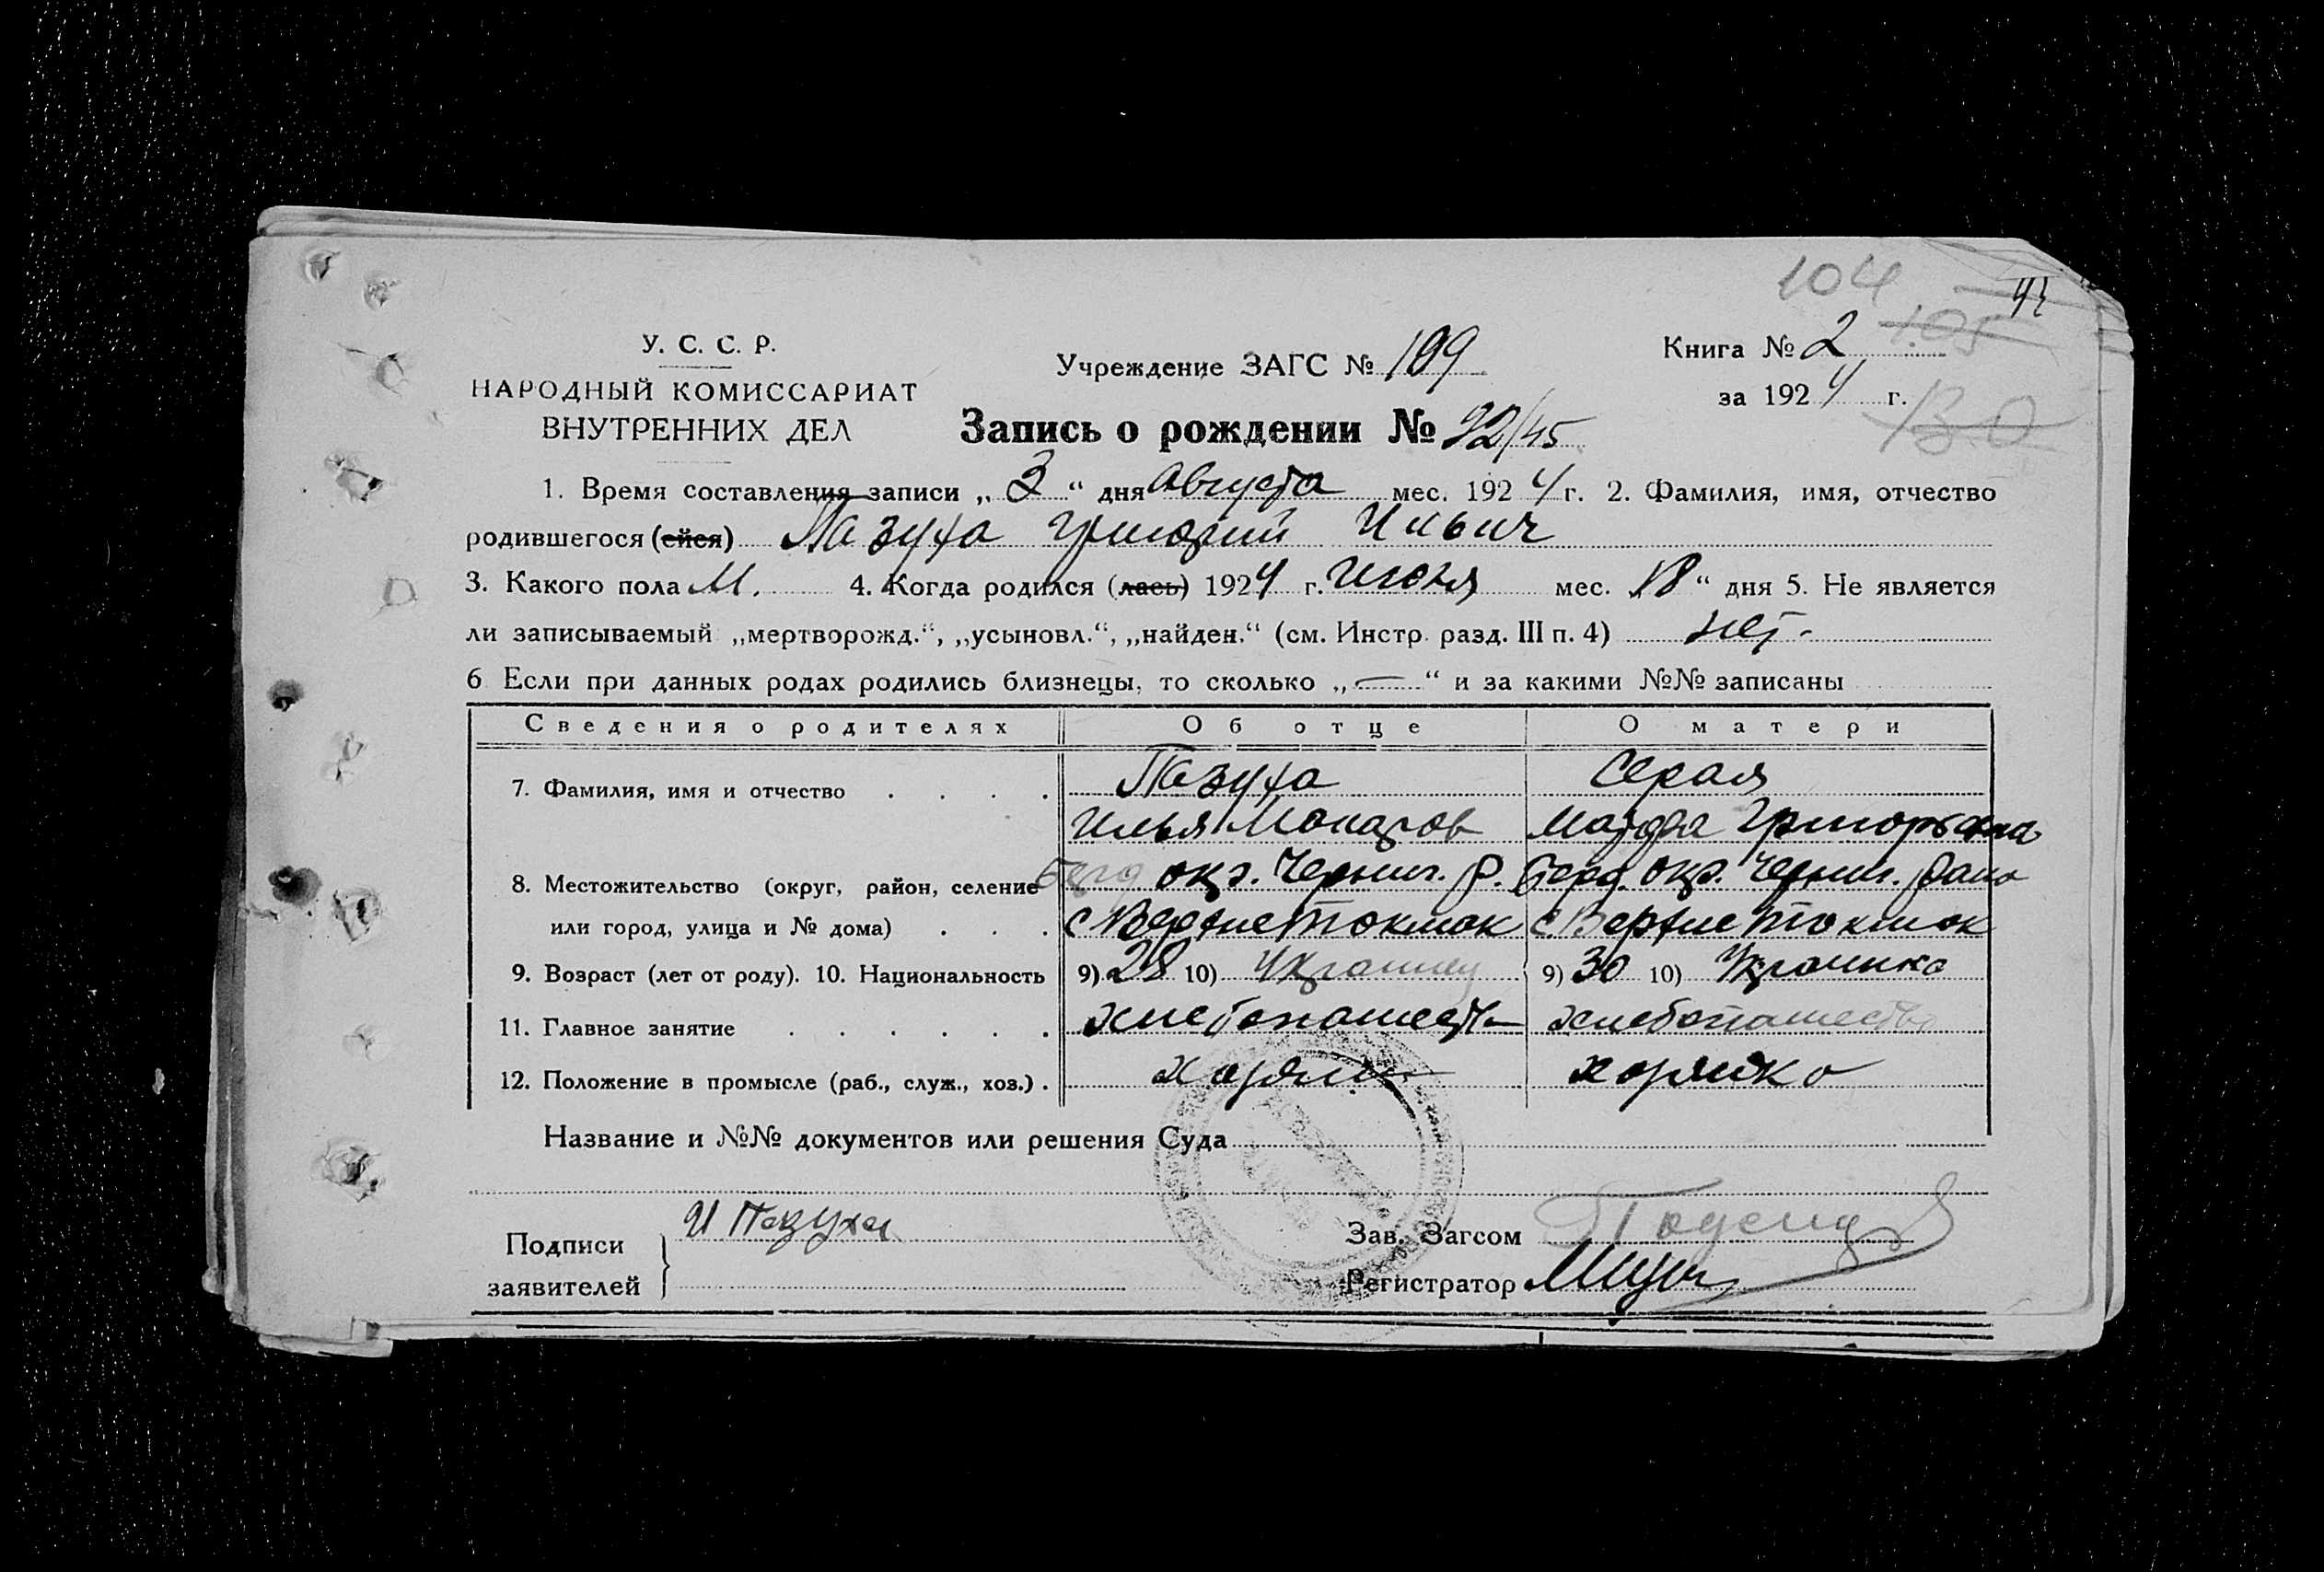 104
У. С. С. Р.
НАРОДНЫЙ КОМИССАРИАТ
ВНУТРЕННИХ ДЕЛ
Учреждение ЗАГС № 199
Книга № 2 105
за 1924 г.
Запись о рождении № 92/45
1. Время составления записи „ 3 “ дня Августа мес. 1924 г. 2. Фамилия, имя, отчество
родившегося (ейся) Пазуха Григорий Ильич
3. Какого пола М. 4. Когда родился (лась) 1924 г. Июля мес. „18“ дня 5. Не является
ли записываемый „мертворожд.“, „усыновл.“, „найден.“ (см. Инстр. разд. III п. 4) нет.
6 Если при данных родах родились близнецы, то сколько „—“ и за какими №№ записаны
Сведения о родителях Об отце О матери
7. Фамилия, имя и отчество . . . . Пазуха Серая
Илья Макаров Марфа Григорьевна
8. Местожительство (округ, район, селение Берд окр. Черниг. р. Берд. окр. Черниг. рано
или город, улица и № дома) . . . с Верхне Токмак с. Верхне Токмак
9. Возраст (лет от роду). 10. Национальность 9) 28 10) Украинец 9) 30 10) Украинка
11. Главное занятие . . . . . . хлебопашеств хлебопашество
12. Положение в промысле (раб., служ., хоз.) . хозяин хозяйка
Название и №№ документов или решения Суда
Подписи
заявителей
И Пазуха
Зав. Загсом
Регистратор